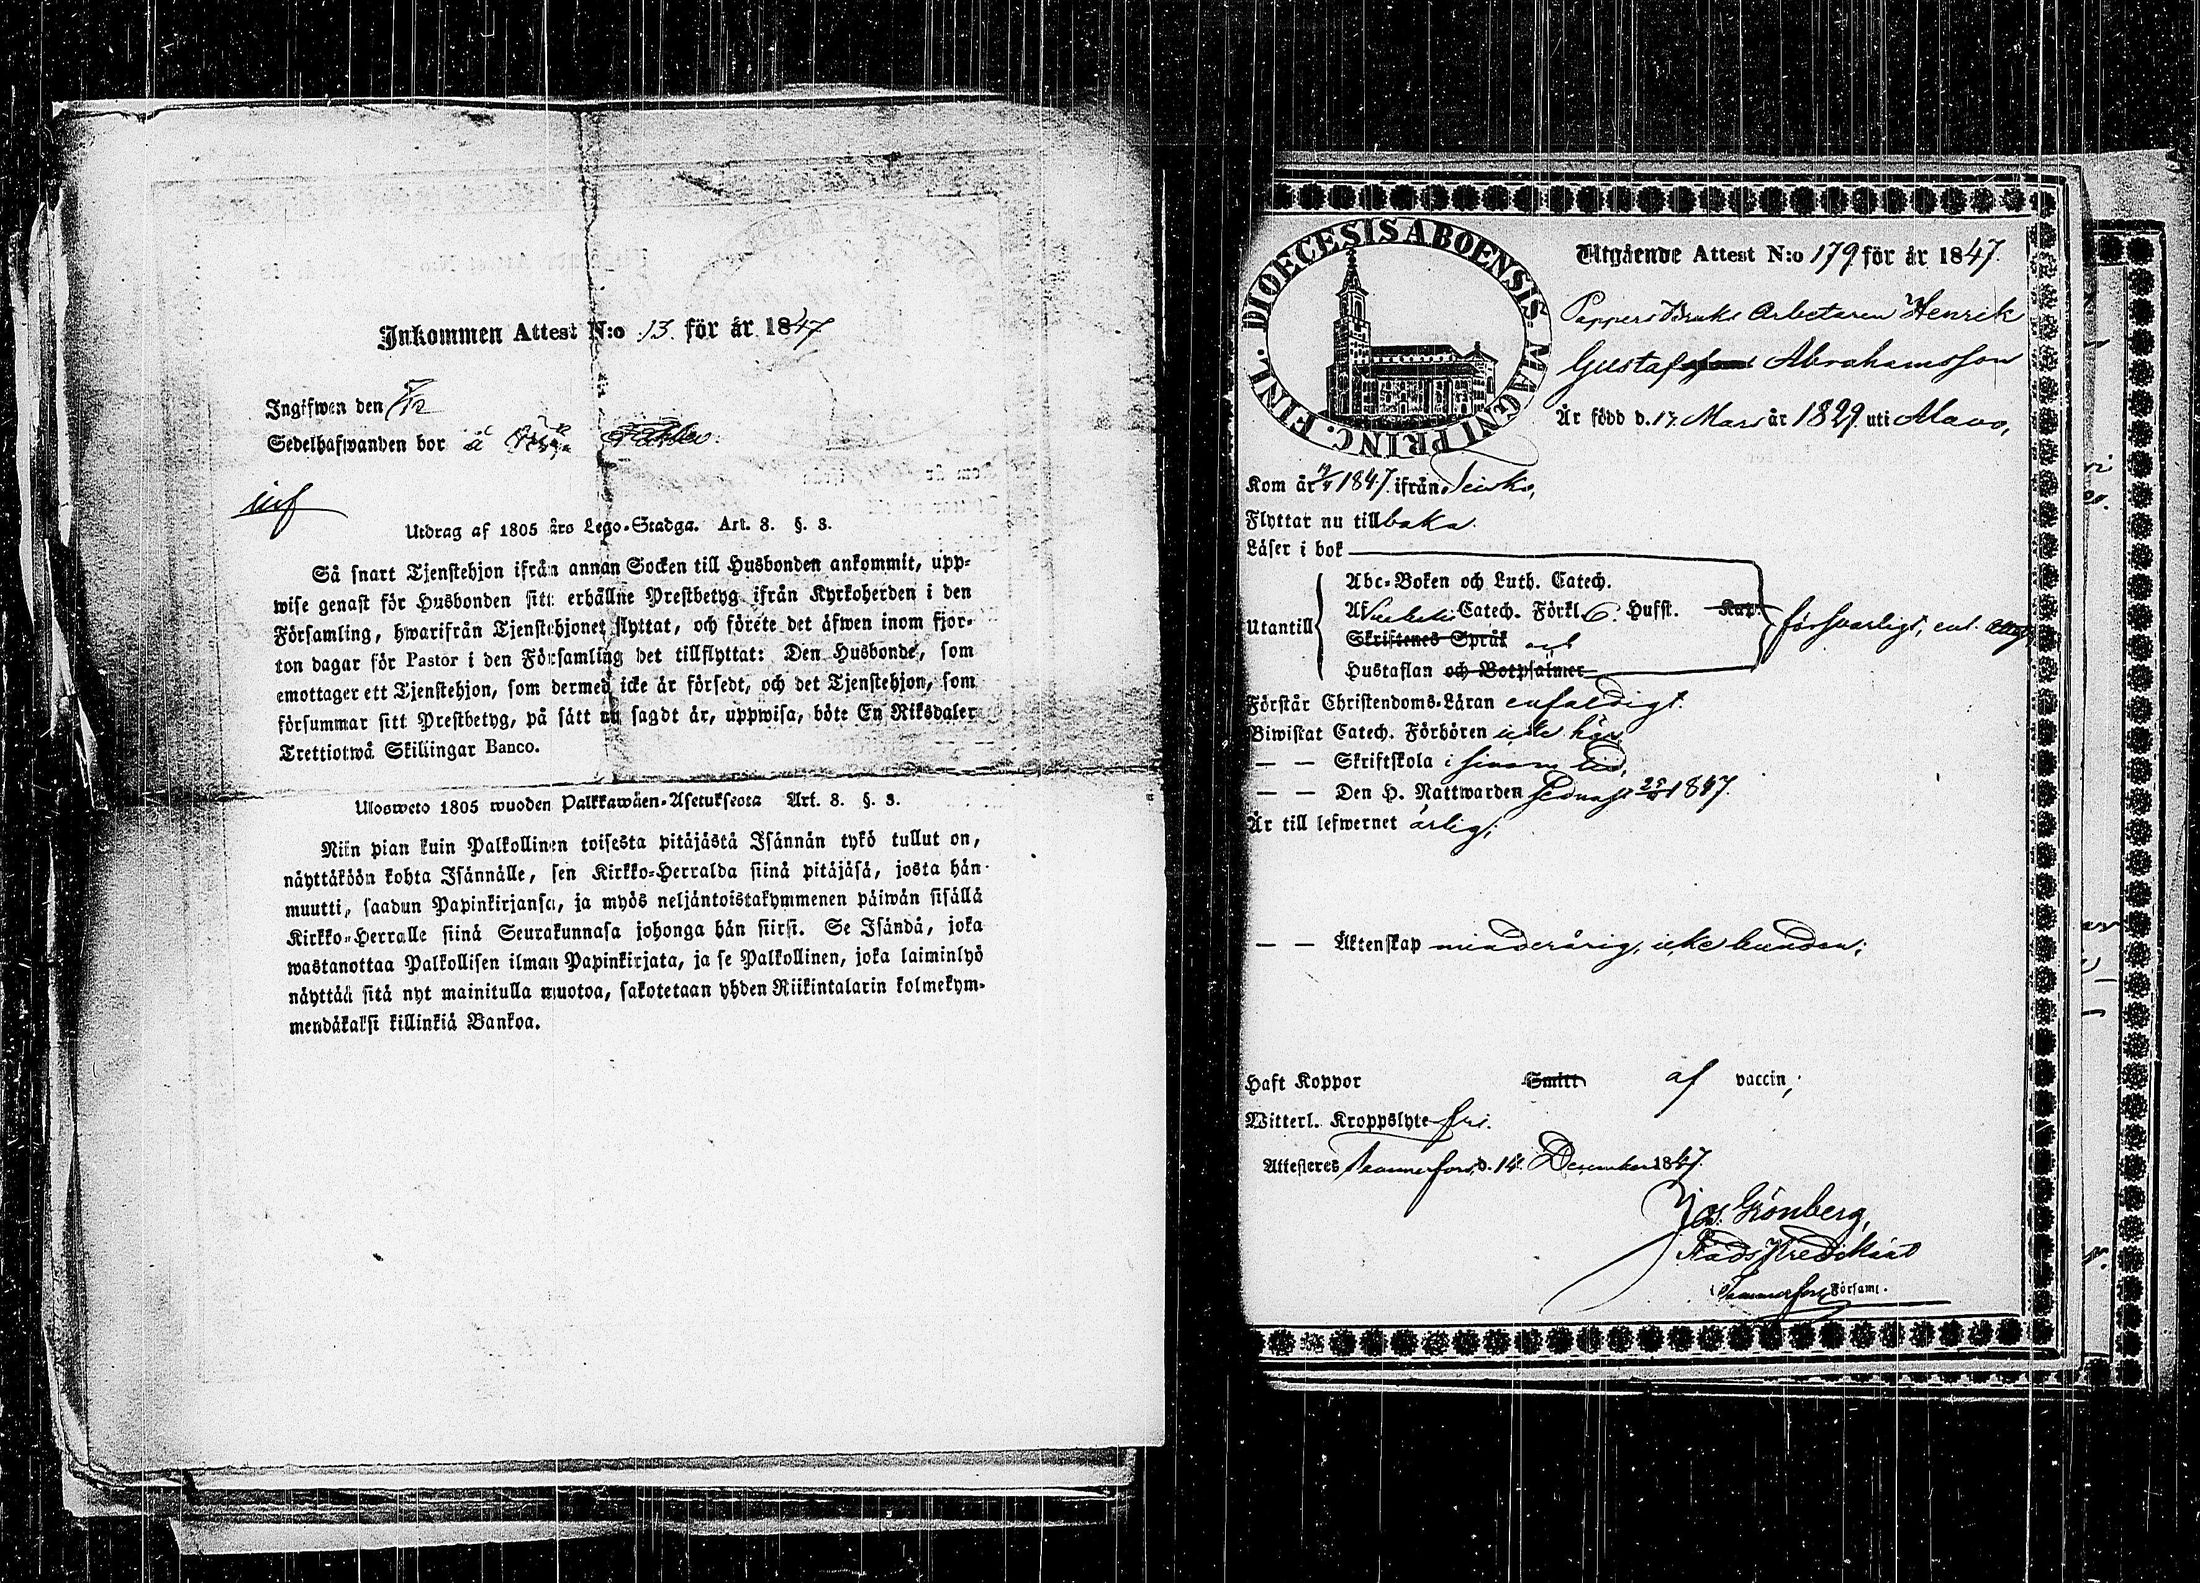 Inkommen Attest N:o 13. för år 1847
Ingifwen den
Sedelhafwanden bor å
Utdrag af 1805 års Lego-Stadga. Art. 3. §. 3.
Så snart Tjenstehjon ifrån annan Socken till Husbonden ankommit, upp-
wise genast för Husbonden sitt erhållne Prestbetyg ifrån Kyrkoherden i den
Församling, hwarifrån Tjenstehjonet flyttat, och förete det äfwen inom fjor-
ton dagar för Pastor i den Församling det tillflyttat: Den Husbonde, som
emottager ett Tjenstehjon, som dermed icke är försedt, och det Tjenstehjon, som
försummar sitt Prestbetyg, på sätt nu sagdt är, uppwisa, böte En Riksdaler
Trettiotwå Skillingar Banco.
Ulosweto 1805 wuoden Palkkawäen-Asetuksesta Art. 3. §. 3.
Niin pian kuin Palkollinen toisesta pitäjästä Isännän tykö tullut on,
näyttäköön kohta Isännälle, sen Kirkko-Herralda siinä pitäjäsä, josta hän
muutti, saadun Papinkirjansa, ja myös neljäntoistakymmenen päiwän sisällä
Kirkko-Herralle siinä Seurakunnasa johonga hän siirsi. Se Isändä, joka
wastanottaa Palkollisen ilman Papinkirjata, ja se Palkollinen, joka laiminlyö
näyttää sitä nyt mainitulla muotoa, sakotetaan yhden Riikintalarin kolmekym-
mendäkaksi killinkiä Bankoa.
DIOECESIS ABOENSIS. MAGNI PRINC. FINL.
Utgående Attest N:o 179 för år 1847.
Pappers Bruks Arbetaren Henrik
Gustaf Abrahamsson
Är född d. 17. Mars år 1829 uti Alavo,
Kom år 1847. ifrån Teisko,
Flyttar nu tillbaka.
Läser i bok
Utantill
Abc-Boken och Luth. Catech.
Af Catech. Förkl. 6. Hufst. Kap.
försvarligt, enl.
Skriftenes Språk
Hustaflan och Botpsalmer
Förstår Christendoms-Läran enfaldigt.
Biwistat Catech. Förhören icke här,
— — Skriftskola i sinom tid,
— — Den H. Nattwarden sednast 1847.
Är till lefwernet ärlig;
— — Äktenskap minderårig, icke bunden;
Haft Koppor Smitt af vaccin;
Witterl. Kroppslyte fri.
Attesteres Tammerfors, d. 14. December 1847.
Jos. Grönberg,
Stads Predikant
i Tammerfors Församl.